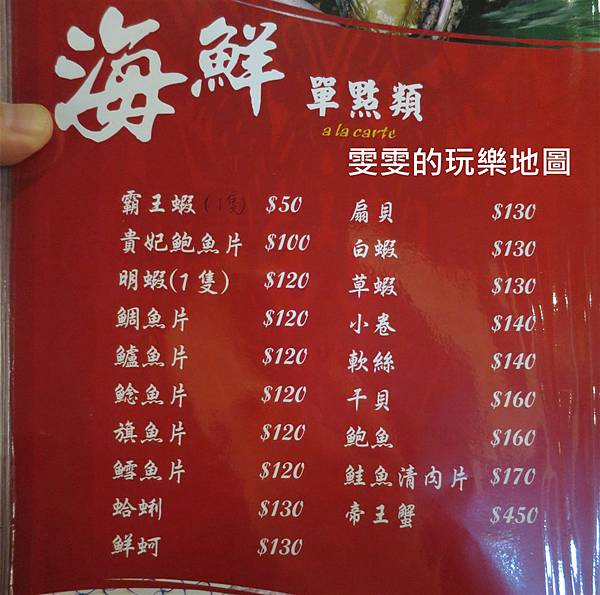 海鮮
單點類
a la carte
雯雯的玩樂地圖
霸王蝦(1隻) $50
貴妃鮑魚片 $100
明蝦(1隻) $120
鯛魚片 $120
鱸魚片 $120
鯰魚片 $120
旗魚片 $120
鱈魚片 $120
蛤蜊 $130
鮮蚵 $130
扇貝 $130
白蝦 $130
草蝦 $130
小卷 $140
軟絲 $140
干貝 $160
鮑魚 $160
鮭魚清肉片 $170
帝王蟹 $450